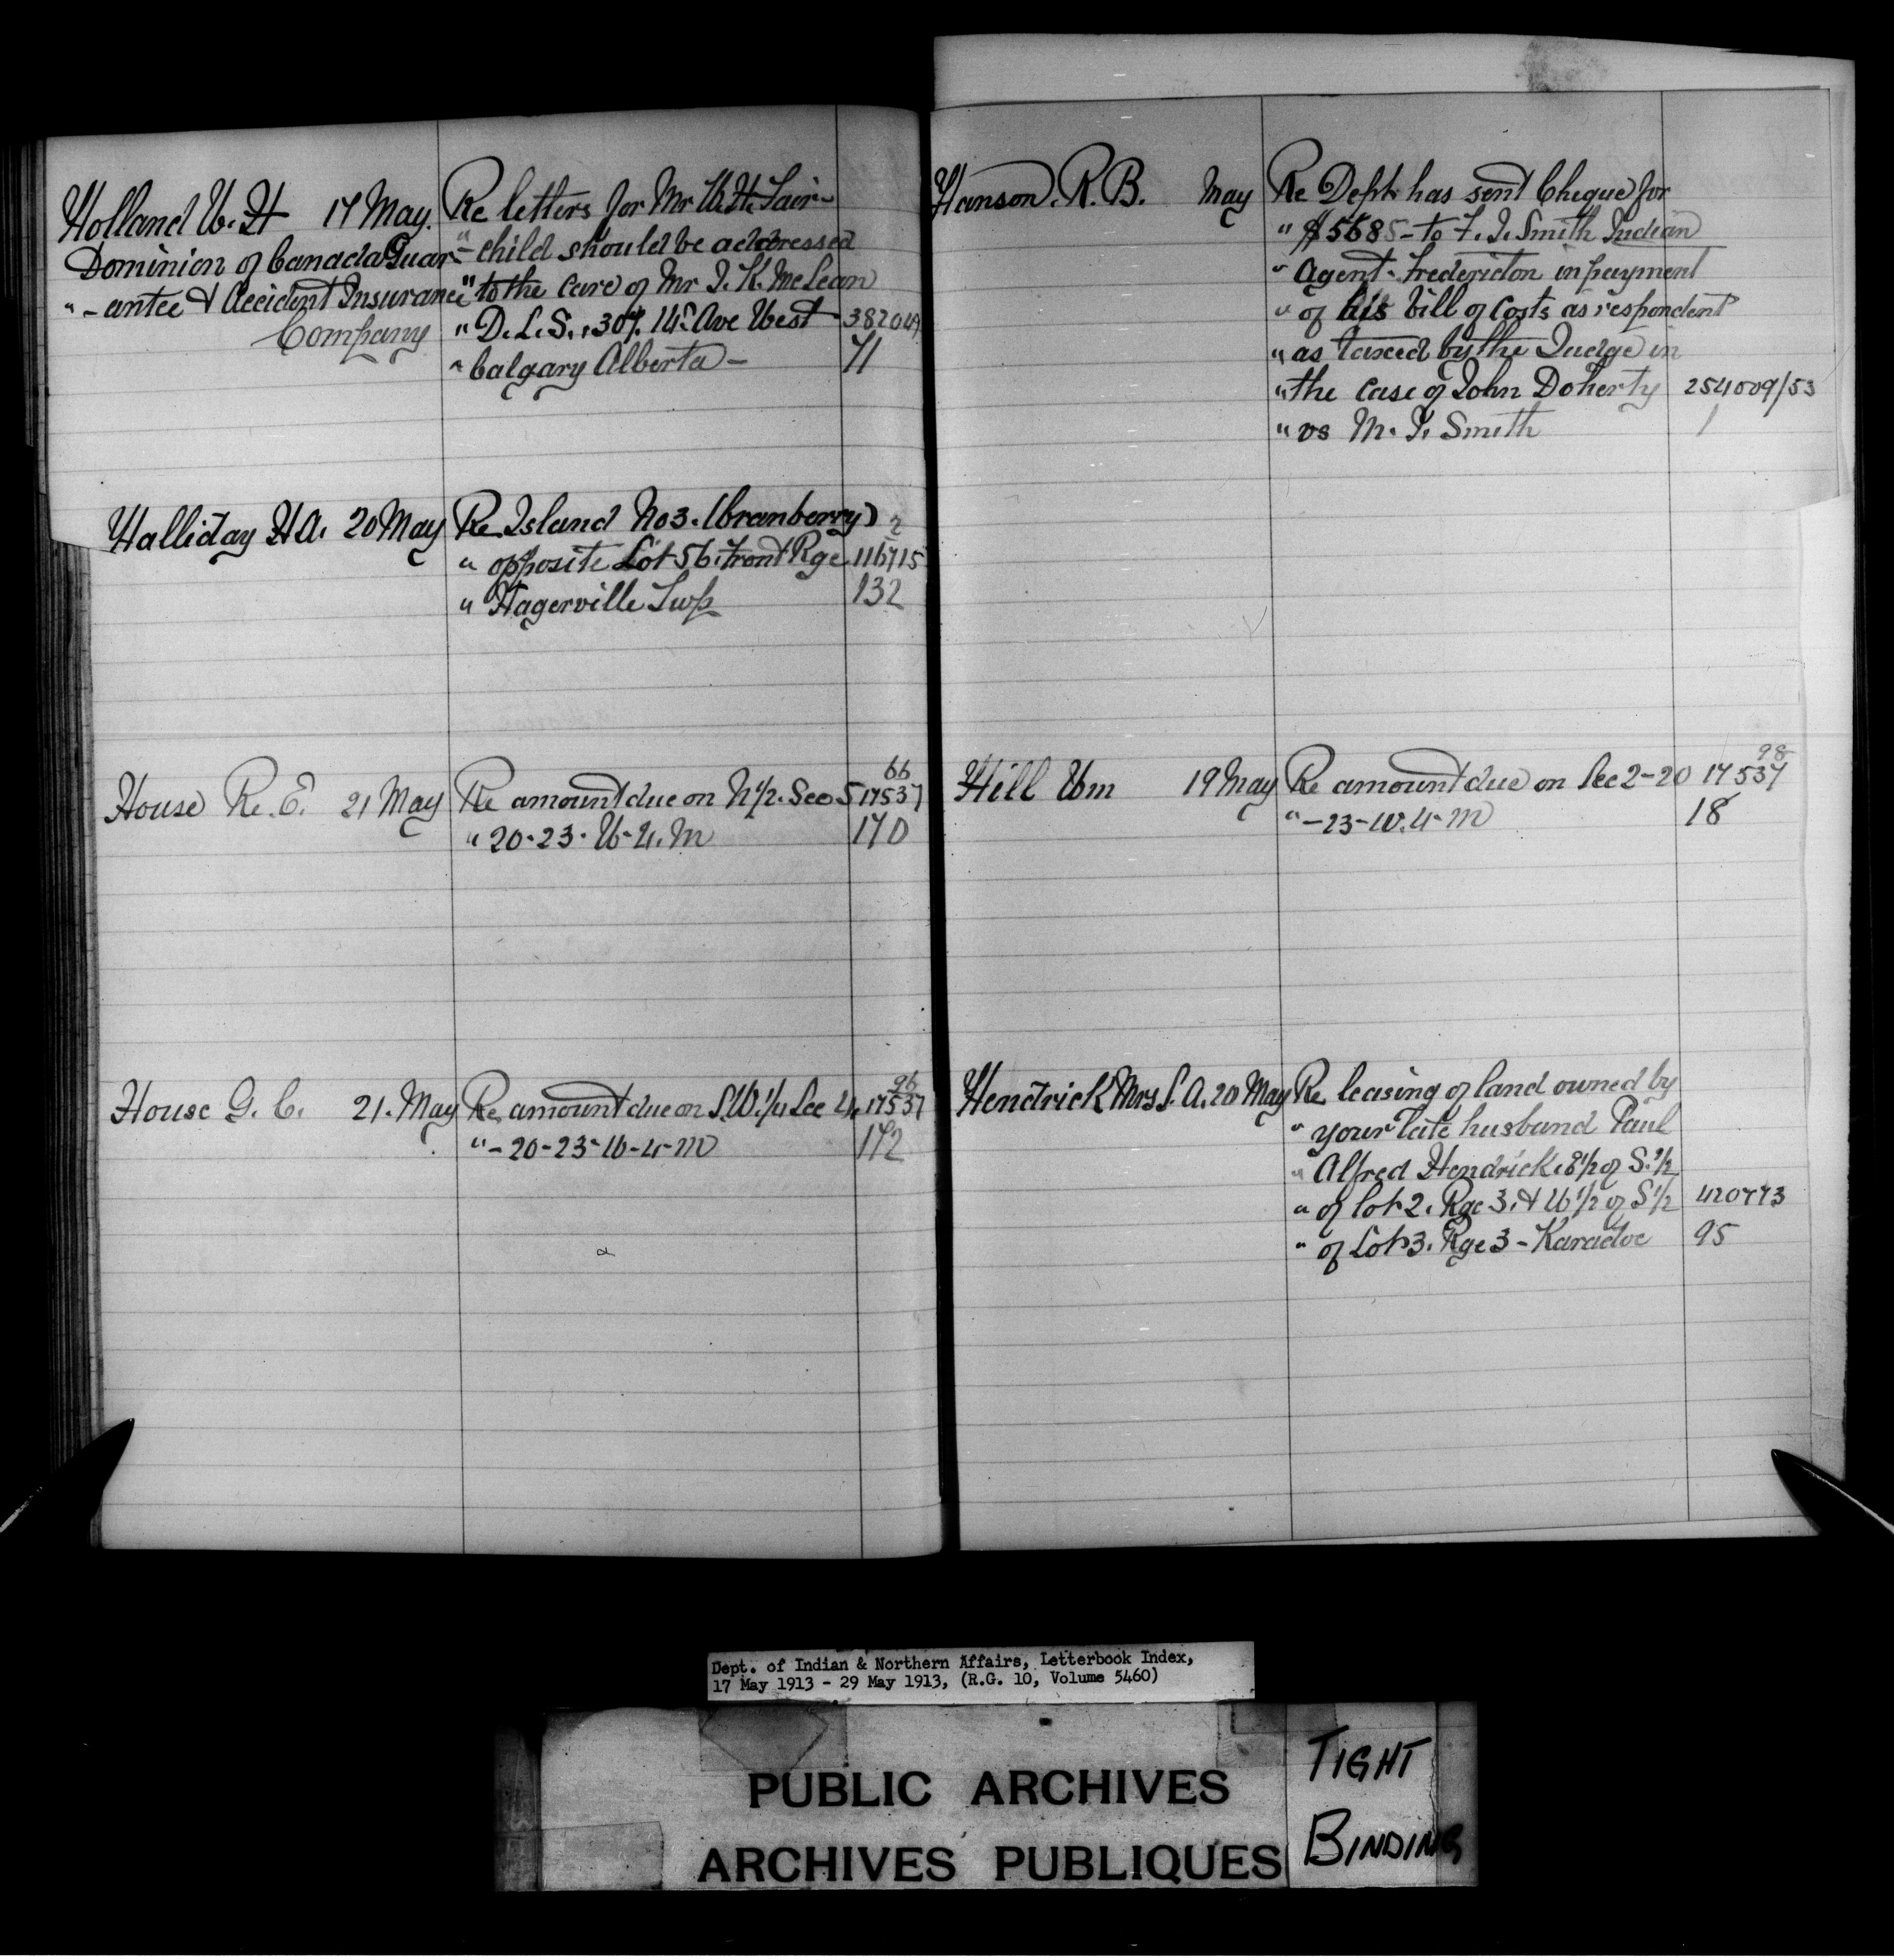 Holland W. H 17 May. Re letters for Mr W. H. Fair-
Dominion of Canada Guar- " - child should be addressed
" - antee & Accident Insurance " to the care of Mr J. K. McLean
Company " D. L. S., 307. 14th Ave West 382049
" Calgary Alberta - 71
Halliday H A. 20 May Re Island No 3. (Cranberry) 2
" opposite Lot 56. Front Rge 116715
" Hagerville Twp 132
House R. E. 21 May Re amount due on N 1/2. Sec 5 17537 66
" 20-23. W-4. M 170
House G. C. 21. May Re amount due on S.W. 1/4 Sec 4. 17537 96
" - 20-23-W-4-M 172
Hanson. R. B. May Re Dept. has sent Cheque for
" $5685 - to F. J. Smith Indian
" Agent. Fredericton in payment
" of his bill of Costs as respondent
" as taxed by the Judge in
" the case of John Doherty 254009/53
" vs M. J. Smith 1
Hill Wm 19 May Re amount due on Sec 2-20 17537 98
" -23-W. 4-M 18
Hendrick Mrs S. A. 20 May Re leasing of land owned by
" your late husband Paul
" Alfred Hendrick. E 1/2 of S. 1/2
" of lot 2. Rge 3. & W 1/2 of S 1/2 420773
" of Lot 3. Rge 3 - Karadoc 95
Dept. of Indian & Northern Affairs, Letterbook Index,
17 May 1913 - 29 May 1913, (R.G. 10, Volume 5460)
PUBLIC ARCHIVES
ARCHIVES PUBLIQUES
TIGHT
BINDING